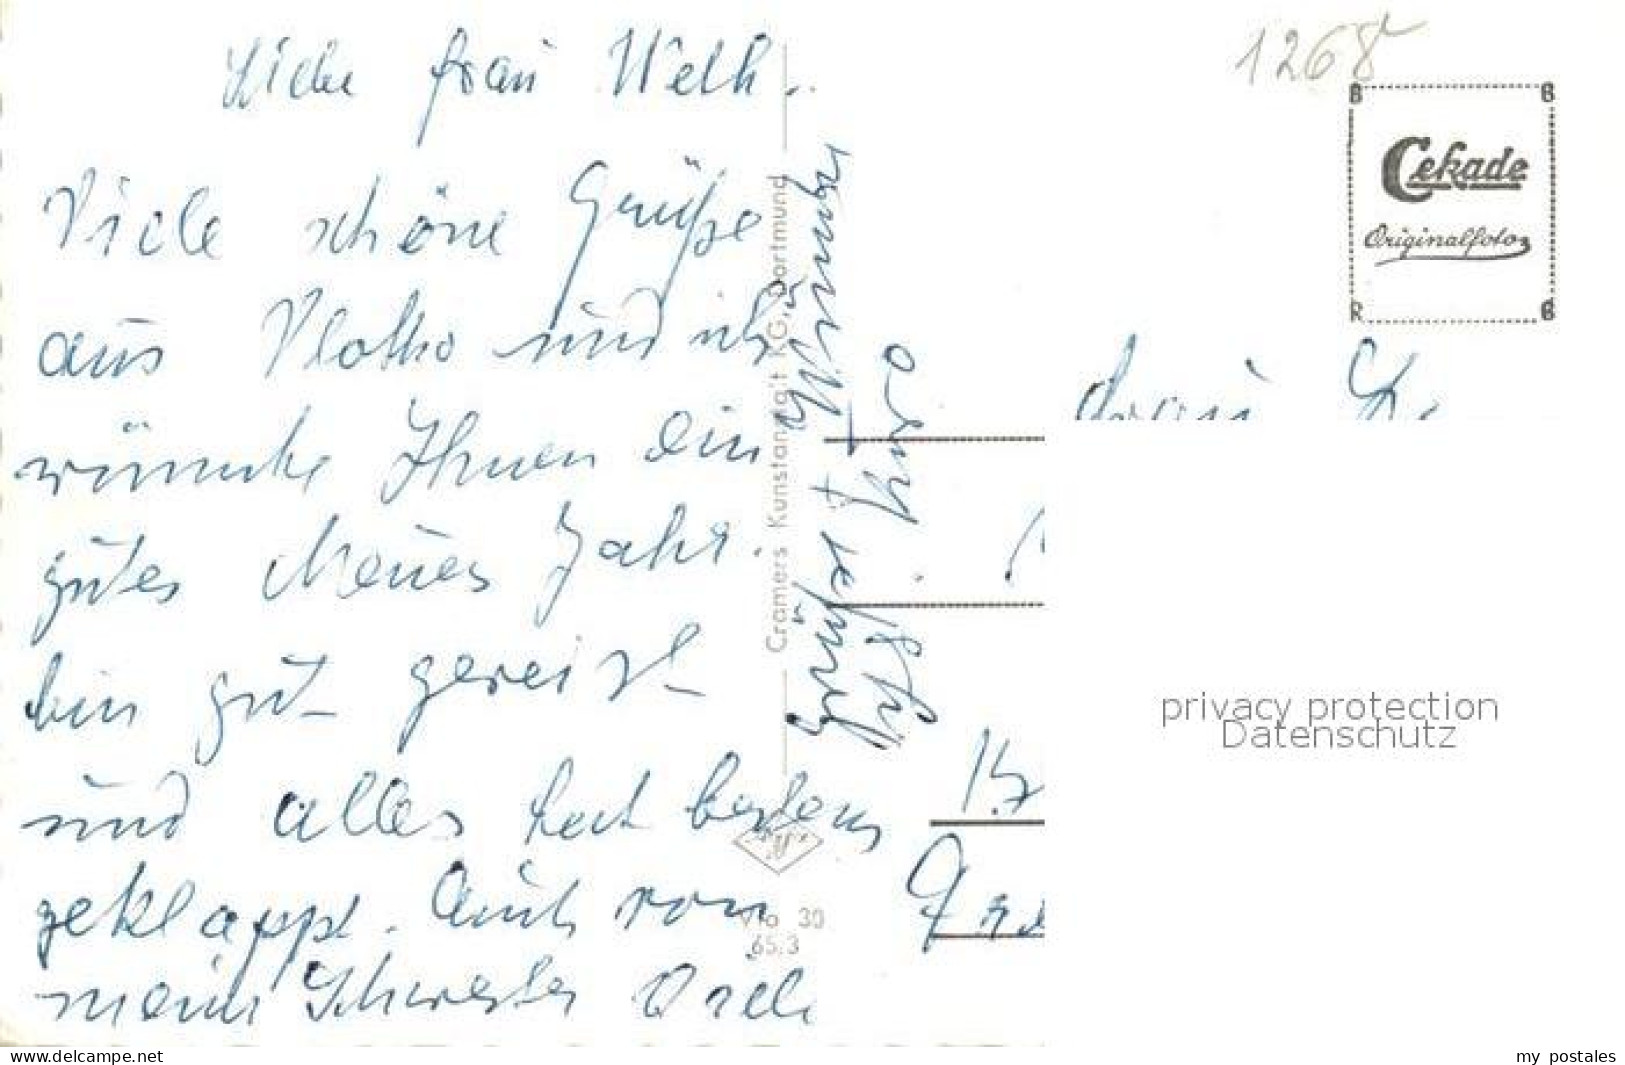 Liebe Frau Welk.
Viele schöne Grüße
aus Vlotho und ich
wünsche Ihnen ein
gutes Neues Jahr.
bin gut gereist
und alles hat bestens
geklappt. Auch von
meiner Schwester viele
Grüße
Ihre
Cramers Kunstanstalt KG, Dortmund
Vlo 30
65.3
1268
B B
Cekade
Originalfoto
R B
Frau
privacy protection
Datenschutz
www.delcampe.net
my_postales